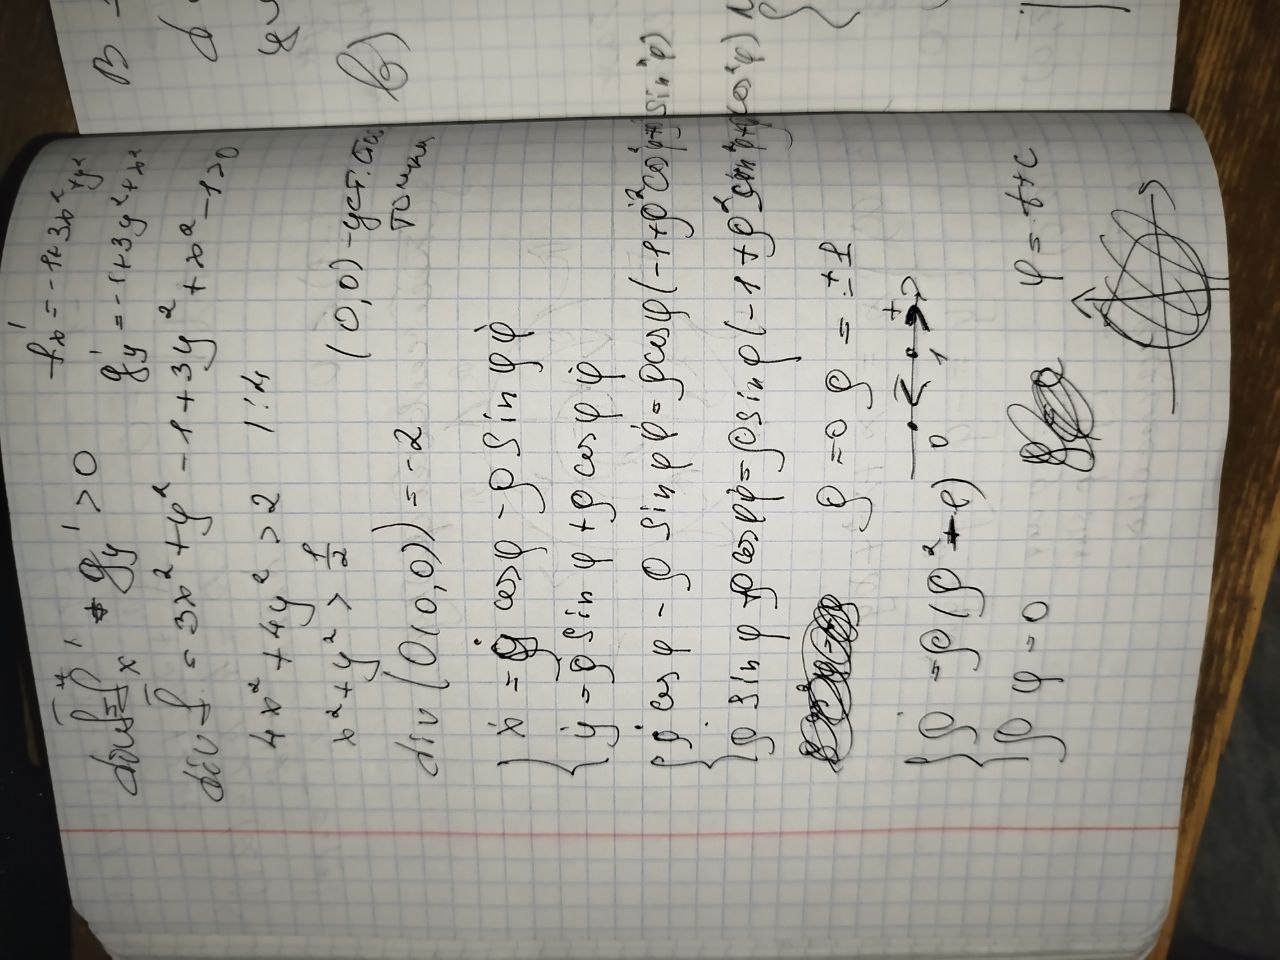 f'x = -1+3x²+y²
g'y = -1+3y²+x²
g'y > 0
div f = 3x²+y² -1+3y²+x²-1>0
4x²+4y²>2 1:4
x²+y²> 1/2
(0,0) -уст. точка
div (O(0,0)) = -2
ẋ = cosφ - ρ sin φ φ̇
ẏ = ρ̇ sin φ + ρ cos φ φ̇
ρ̇ cos φ - ρ sin φ φ̇ = ρ cos φ (-1+ρ² cos²φ+ρ² sin²φ)
ρ̇ sin φ + ρ cos φ φ̇ = ρ sin φ (-1+ρ² sin²φ+ρ² cos²φ)
ρ = 0 ρ = ±1
0 1 +
ρ̇ = ρ(ρ²-1)
ρ φ = 0
φ = t+c
В
в)